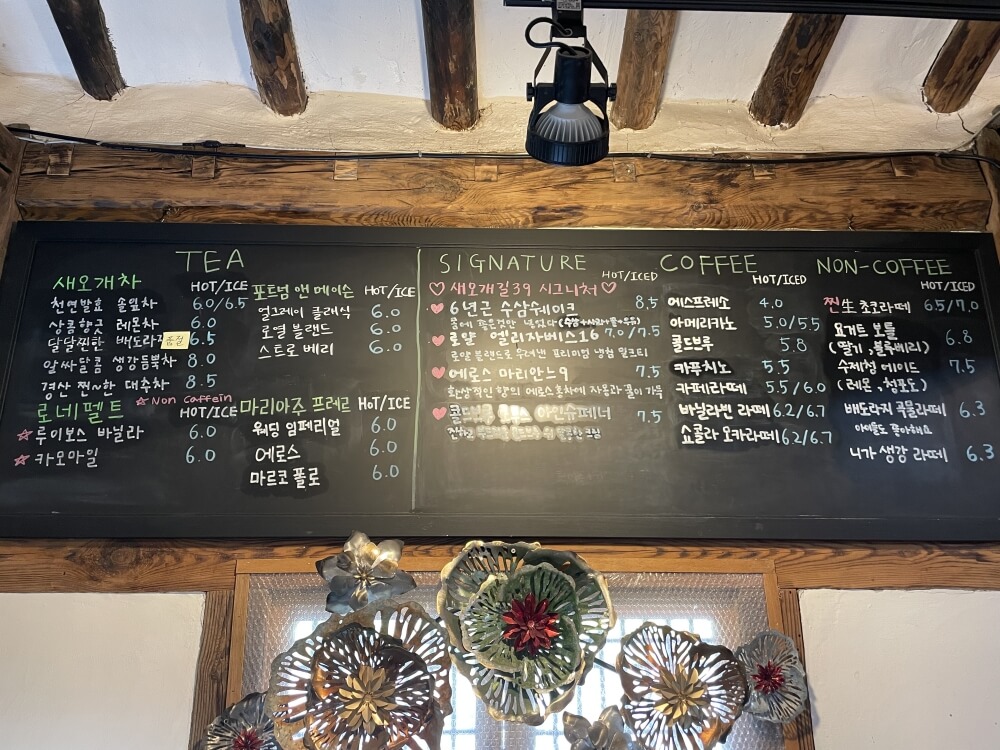 TEA
새오개차 HOT/ICE
천연발효 솔잎차 6.0/6.5
상큼향긋 레몬차 6.0
달달찐한 배도라지 품절 6.5
알싸달콤 생강듬뿍차 8.0
경산 찐~한 대추차 8.5
☆ Non Caffein
로네펠트 HOT/ICE
☆ 루이보스 바닐라 6.0
☆ 카모마일 6.0
포트넘 앤 메이슨 HOT/ICE
얼그레이 클래식 6.0
로열 블랜드 6.0
스트로베리 6.0
마리아주 프레르 HOT/ICE
웨딩 임페리얼 6.0
에로스 6.0
마르코 폴로 6.0
SIGNATURE
HOT/ICED
♡ 새오개길39 시그니처 ♡
♥ 6년근 수삼쉐이크 8.5
몸에 좋은것만 넣었다 (수삼+사과+꿀+우유)
♥ 로얄 엘리자베스16 7.0/7.5
로얄 블랜드로 우려낸 프리미엄 냉침 밀크티
♥ 에로스 마리안느9 7.5
환상적인 향의 에로스홍차에 자몽과 꿀이 가득
♥ 콜드브루 아인슈페너 7.5
COFFEE
HOT/ICED
에스프레소 4.0
아메리카노 5.0/5.5
콜드브루 5.8
카푸치노 5.5
카페라떼 5.5/6.0
바닐라빈 라떼 6.2/6.7
쇼콜라 모카라떼 6.2/6.7
NON-COFFEE
HOT/ICED
찐生 초코라떼 6.5/7.0
요거트 보틀 6.8
(딸기, 블루베리)
수제청 에이드 7.5
(레몬, 청포도)
배도라지 곡물라떼 6.3
아이들도 좋아해요
니가 생강 라떼 6.3